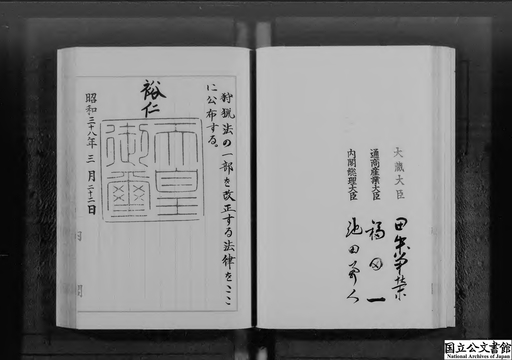 大藏大臣 田中角榮
通商産業大臣 福田一
内閣総理大臣 池田勇人
狩猟法の一部を改正する法律をここ
に公布する。
裕仁
天皇
御璽
昭和三十八年三月二十二日
国立公文書館
National Archives of Japan